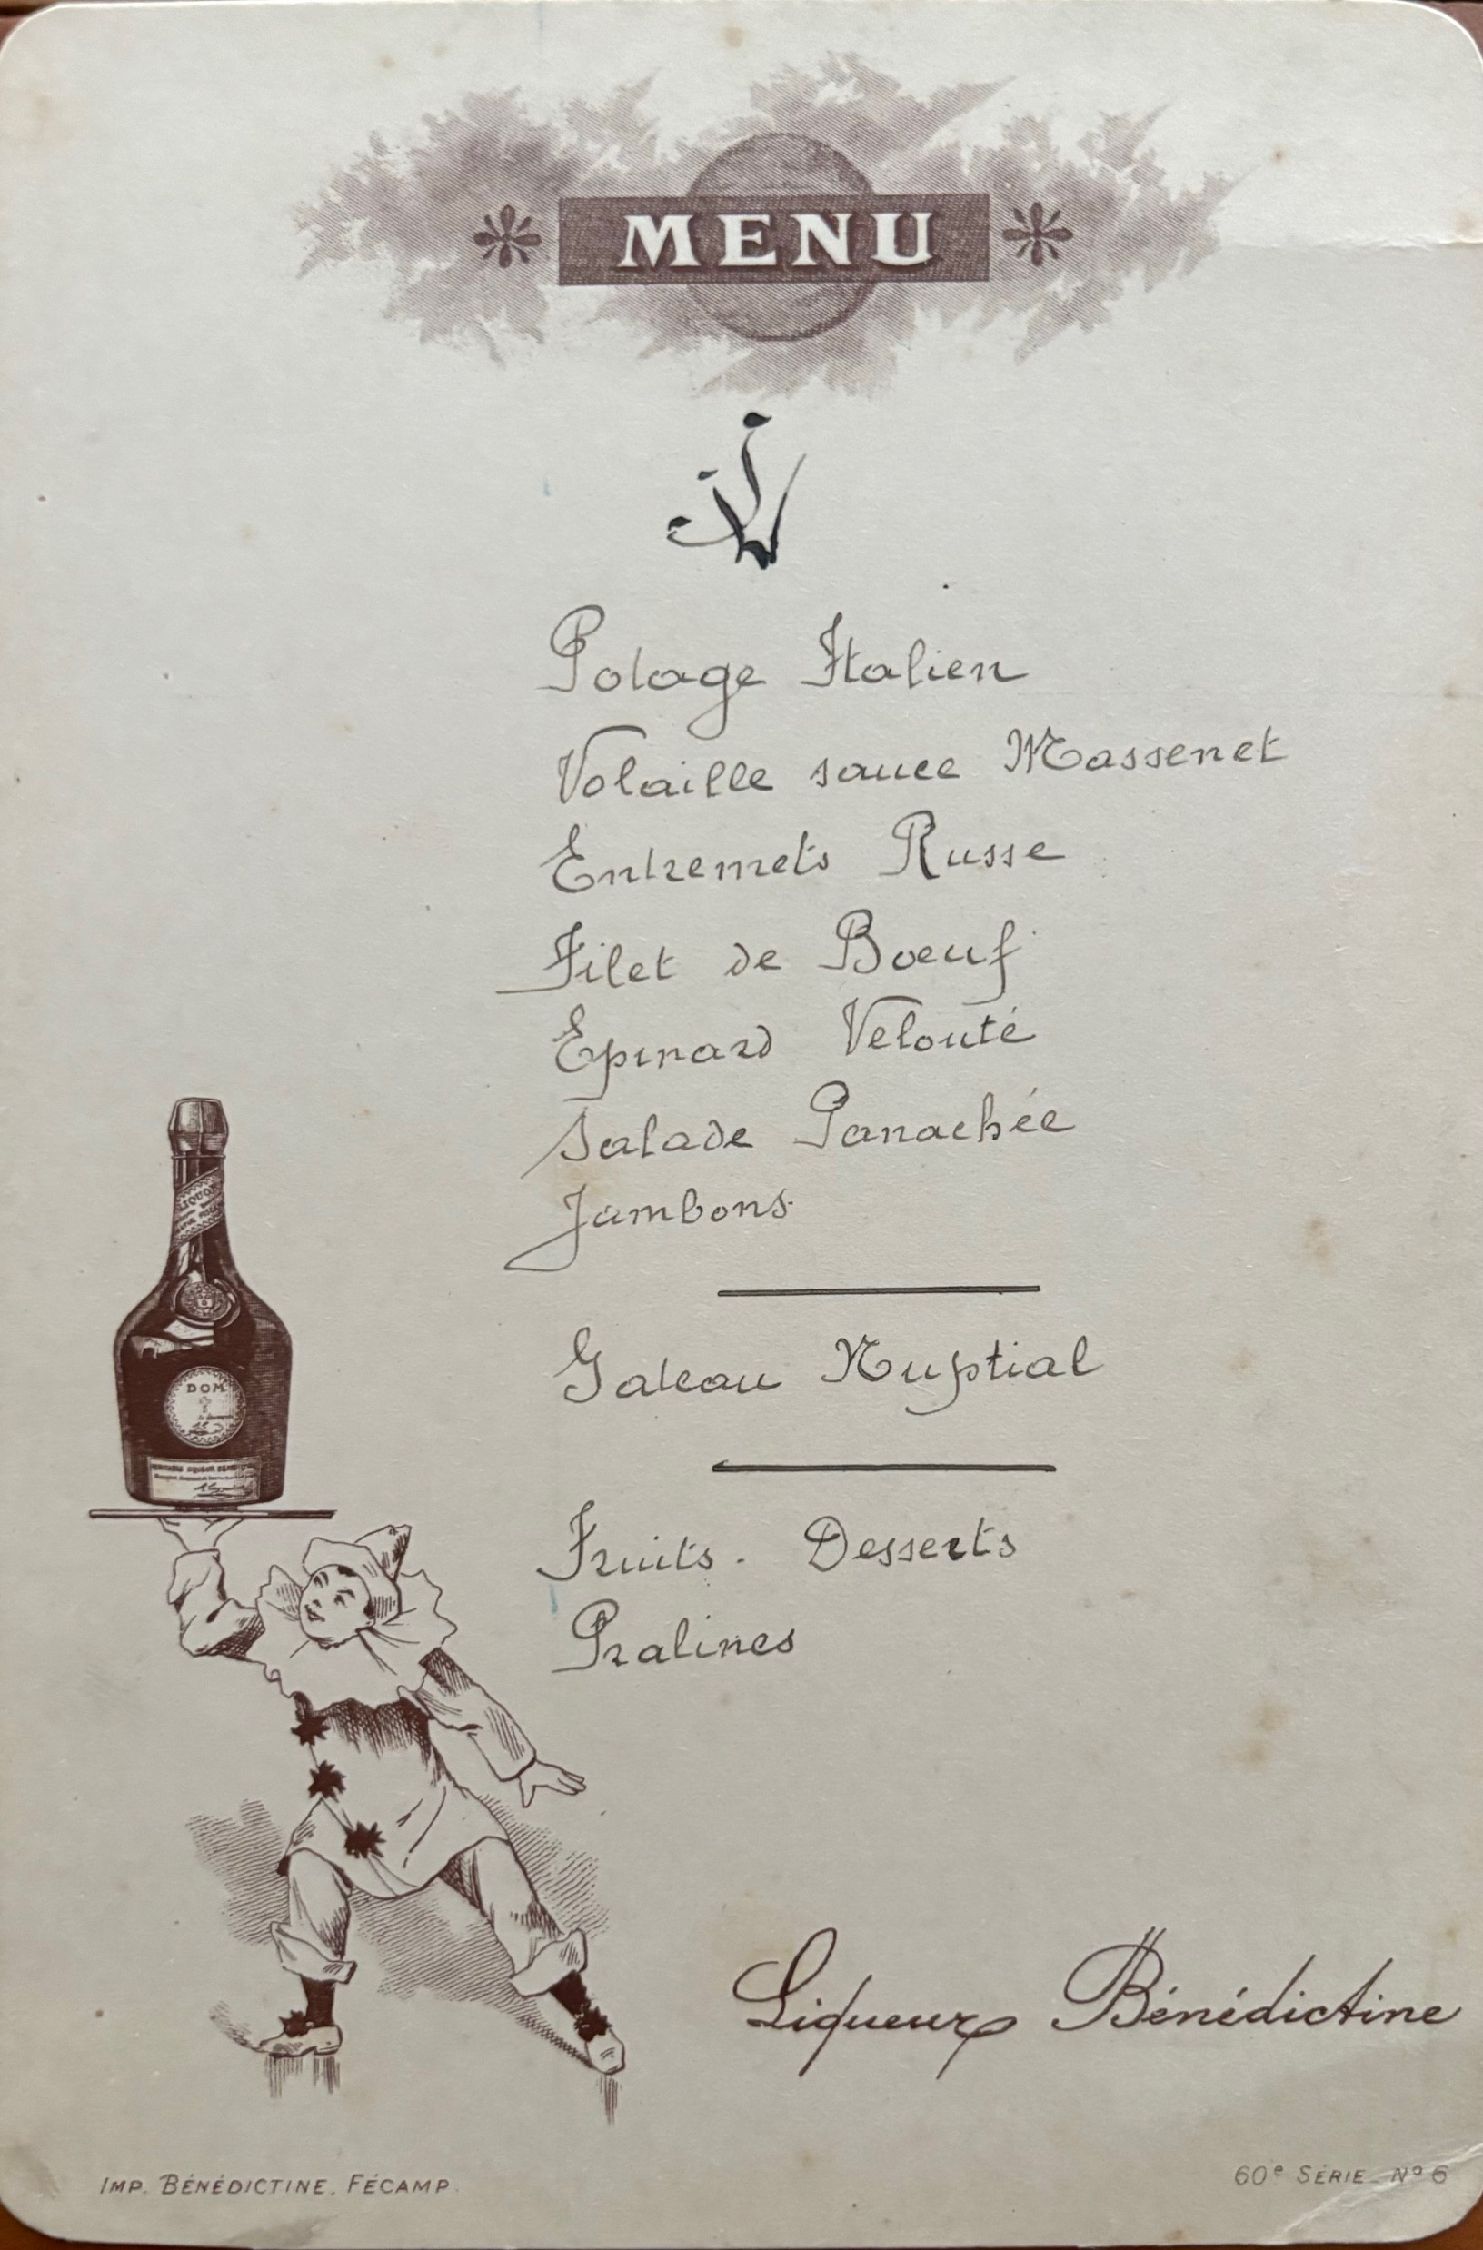 MENU
Potage Italien
Volaille sauce Massenet
Entremets Russe
Filet de Boeuf
Epinard Velouté
Salade Panachée
Jambons
Gateau Nuptial
Fruits. Desserts
Pralines
DOM
Liqueur Bénédictine
IMP. BÉNÉDICTINE. FÉCAMP.
60e SÉRIE_ No 6